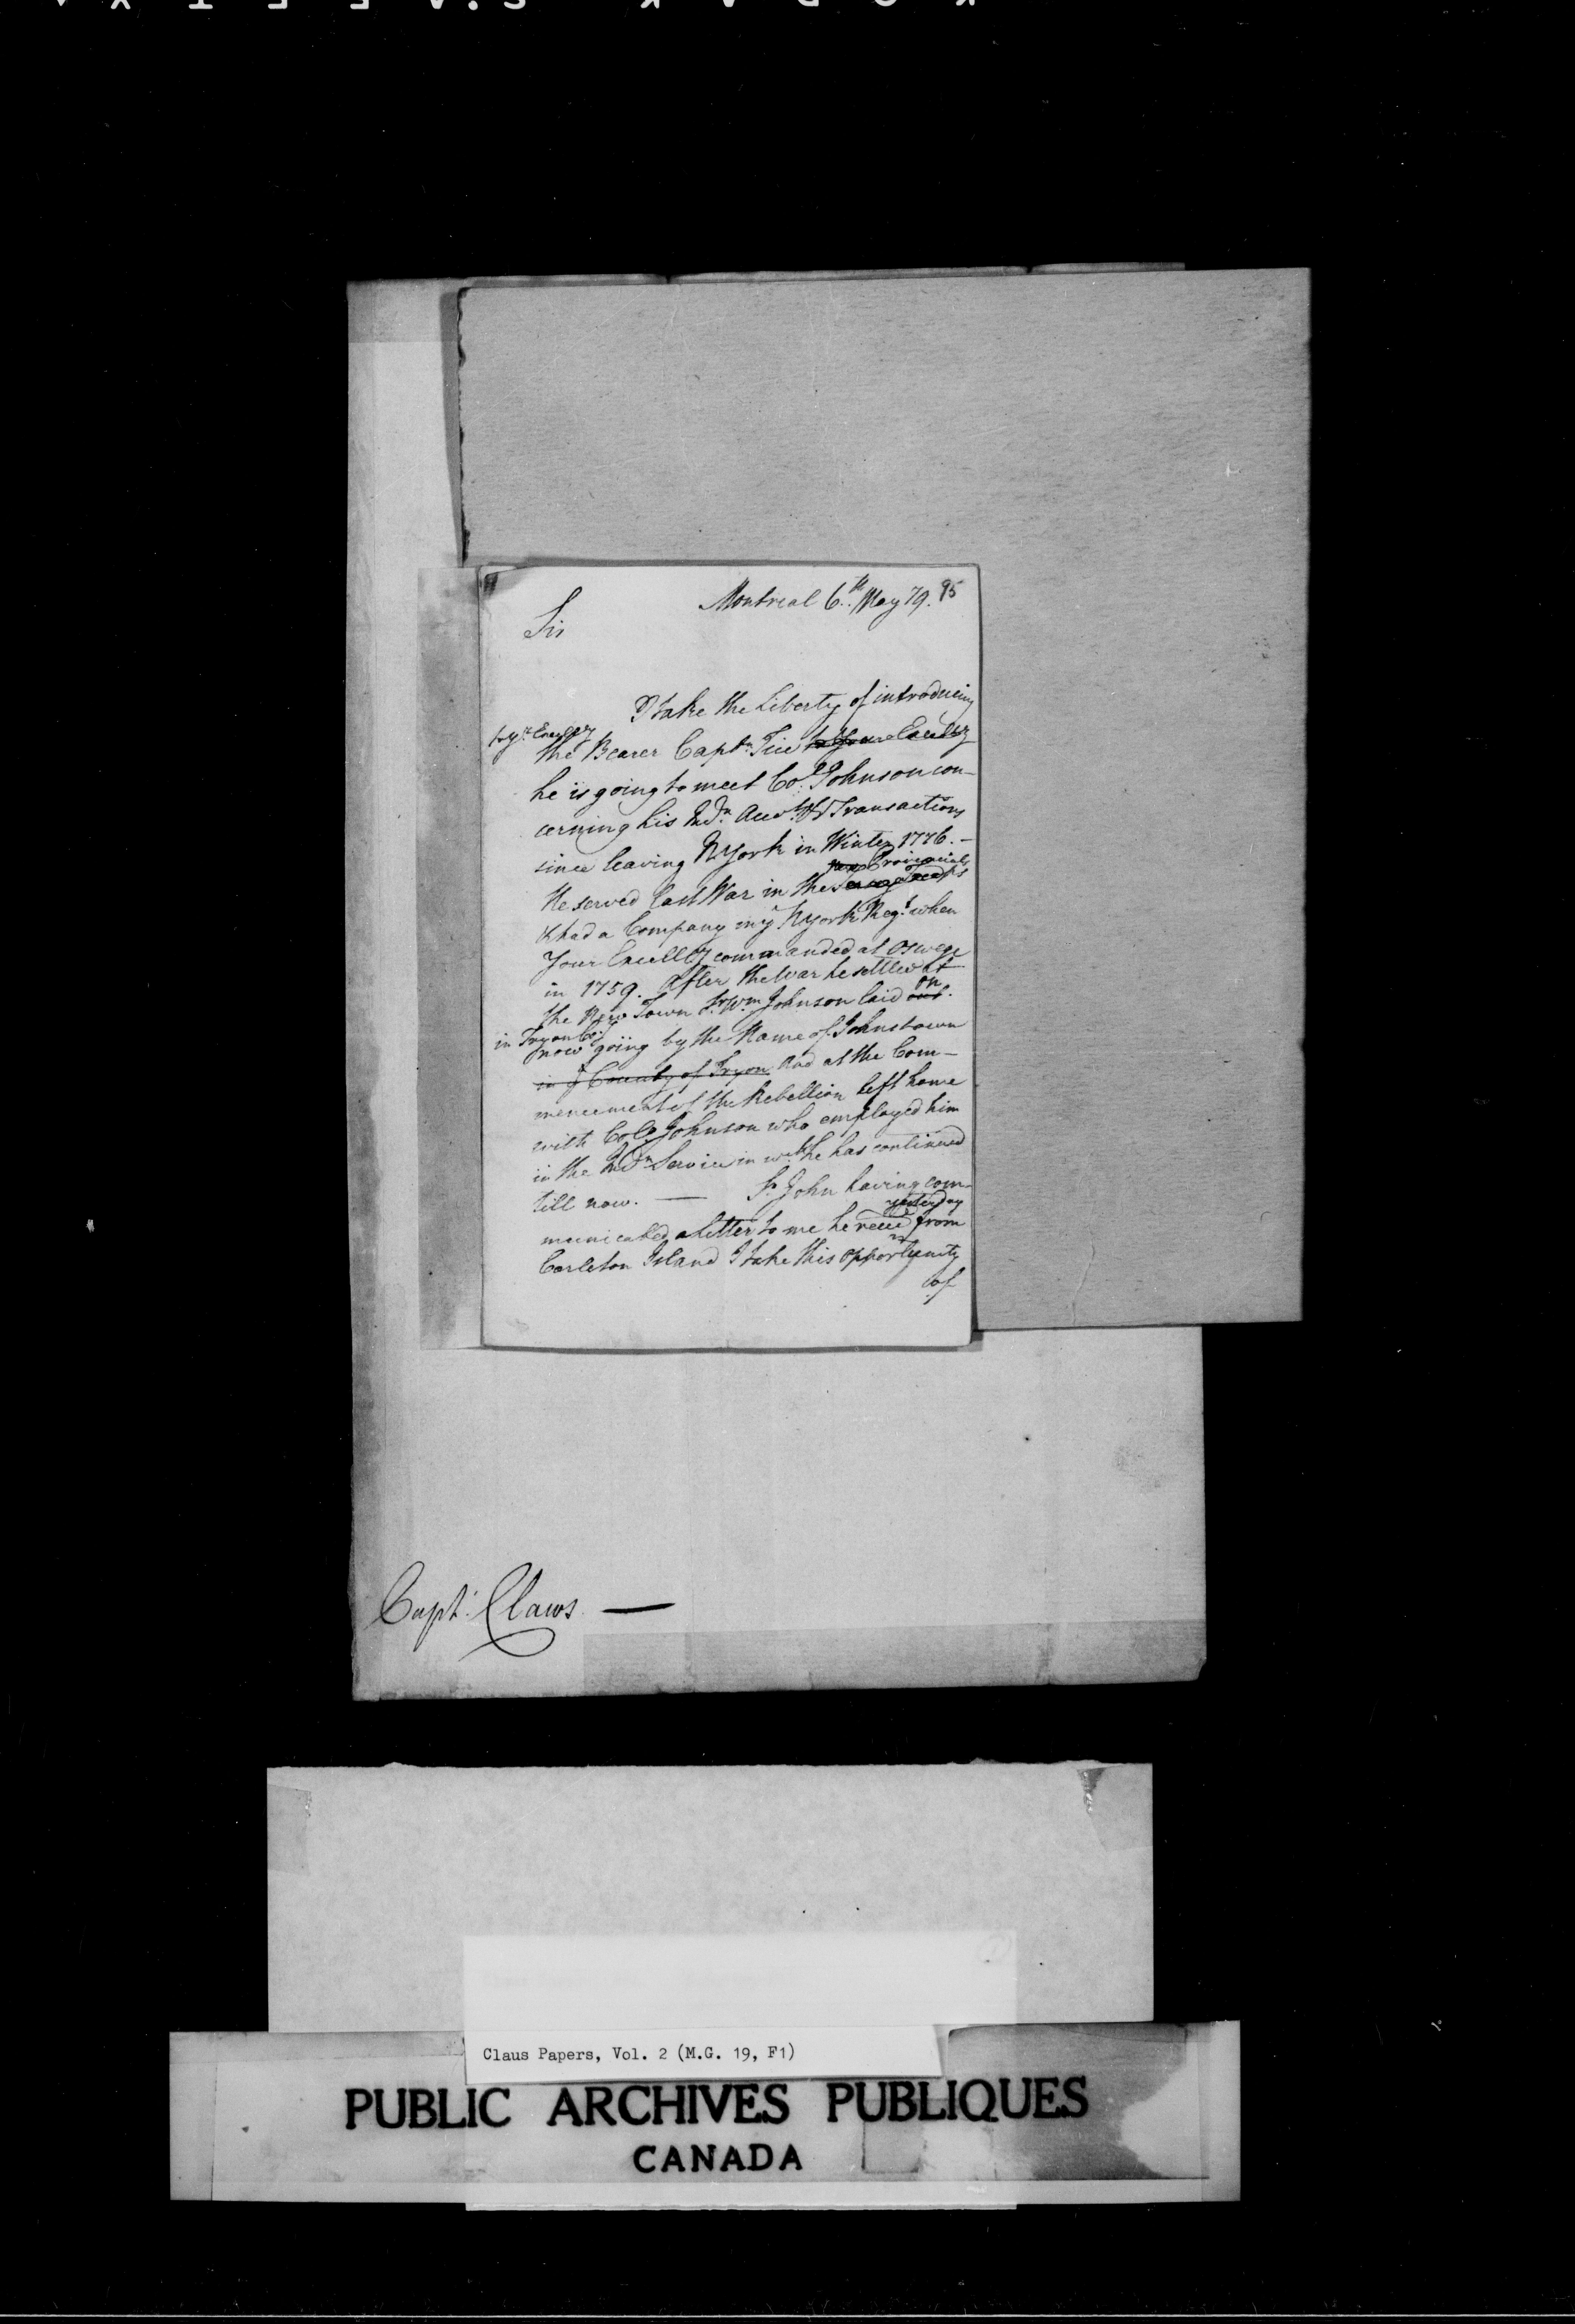 Montreal 6.th May 79. 95
Sir
I take the Liberty of introducing
to yr. Excellcy
the Bearer Captn. Tice to Your Excellcy
he is going to meet Col. Johnson con-
cerning his Indn. Accots. & Transactions
since leaving NYork in Winter 1776. -
Provincials
He served last War in the Troops
& had a Company in ye NYork Regt. when
Your Excellcy commanded at Oswego
in 1759. After the War he settled at
on
the New Town Sr. Wm. Johnson laid out.
in Tryon Coy.
now going by the Name of Johnstown
in ye County of Tryon And at the Com-
mencement of the Rebellion left home
with Colo. Johnson who employed him
in the Indn. Service in wch. he has continued
till now. — Sr. John having com-
yesterday
municated a Letter to me he recd from
Carleton Island I take this opportunity
of
Capt. Claws. —
Claus Papers, Vol. 2 (M.G. 19, F1)
PUBLIC ARCHIVES PUBLIQUES
CANADA